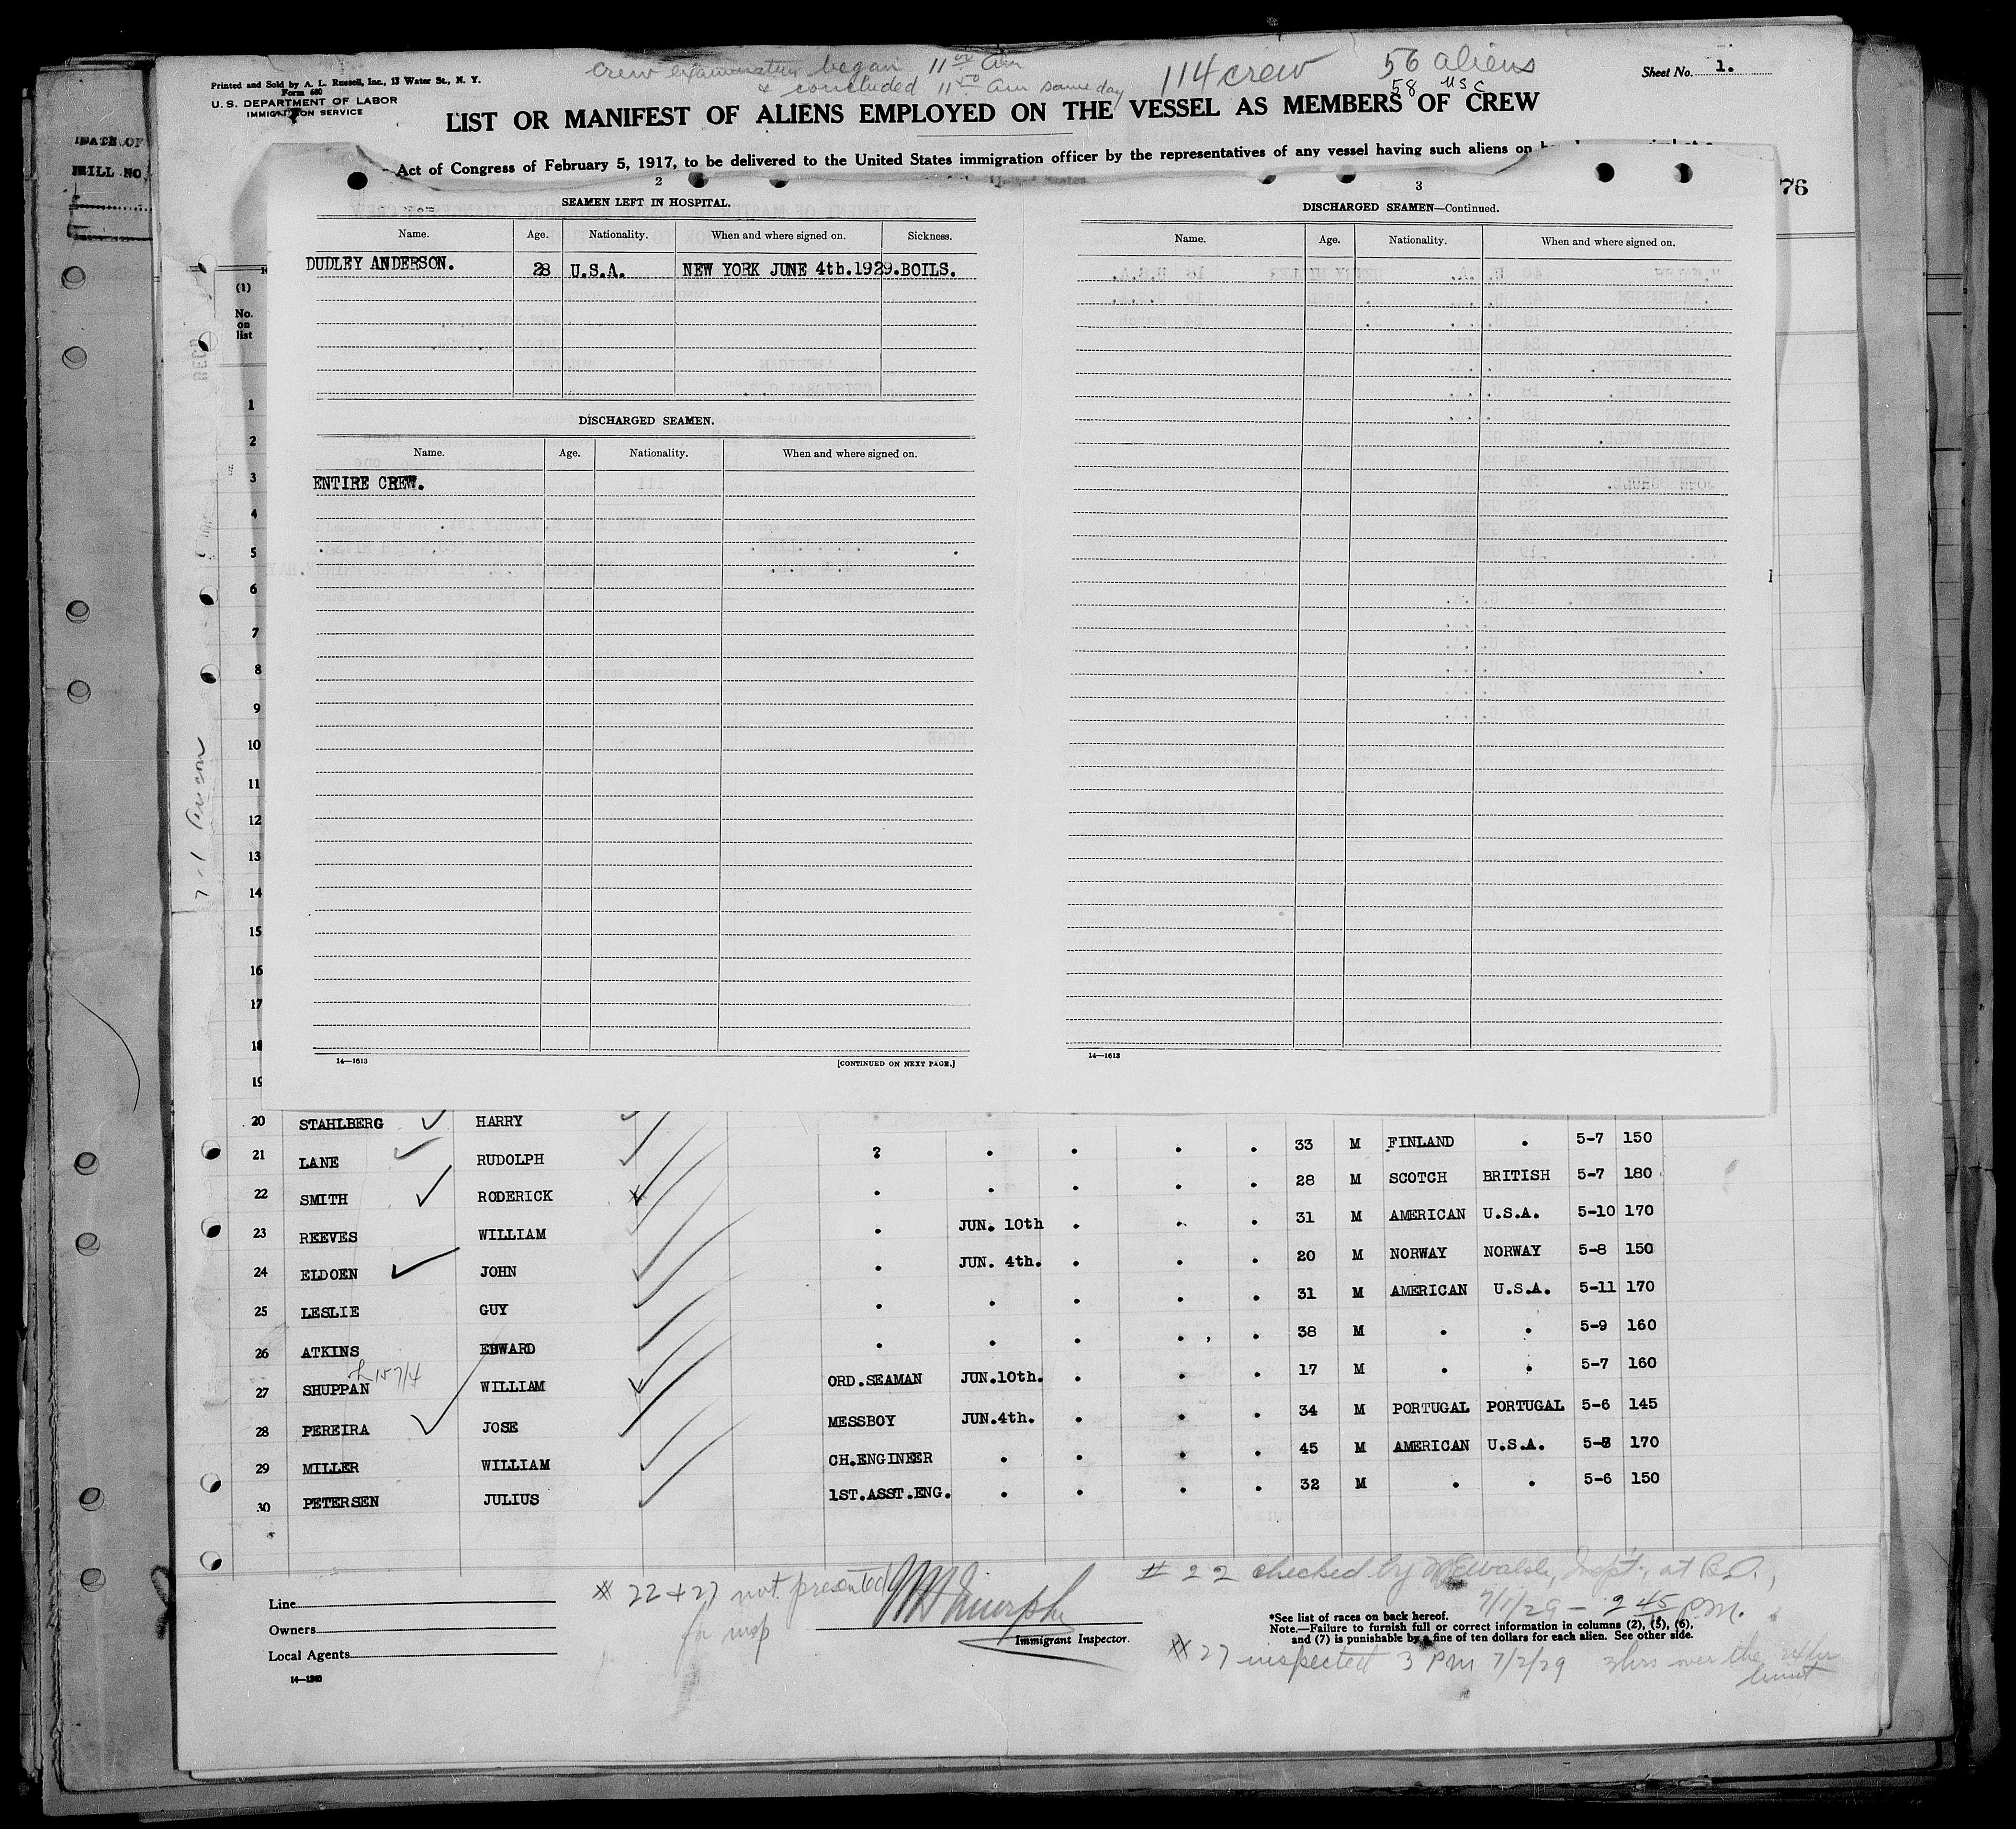 crew examination began 11 00 am
& concluded 11 50 am same day
114 crew
56 aliens
58 USC
Sheet No. 1.
Printed and Sold by A. L. Russell, Inc., 13 Water St., N. Y.
Form 680
U. S. DEPARTMENT OF LABOR
IMMIGRATION SERVICE
LIST OR MANIFEST OF ALIENS EMPLOYED ON THE VESSEL AS MEMBERS OF CREW
Act of Congress of February 5, 1917, to be delivered to the United States immigration officer by the representatives of any vessel having such aliens on
DATE OF
BILL NO
76
2
SEAMEN LEFT IN HOSPITAL.
Name. Age. Nationality. When and where signed on. Sickness.
DUDLEY ANDERSON. 28 U.S.A. NEW YORK JUNE 4th.1929. BOILS.
DISCHARGED SEAMEN.
Name. Age. Nationality. When and where signed on.
ENTIRE CREW.
14—1613 [CONTINUED ON NEXT PAGE.]
3
DISCHARGED SEAMEN—Continued.
Name. Age. Nationality. When and where signed on.
14—1613
(1)
No.
on
list
1
2
3
4
5
6
7
8
9
10
11
12
13
14
15
16
17
18
19
20 STAHLBERG HARRY
21 LANE RUDOLPH ? . . . . 33 M FINLAND . 5-7 150
22 SMITH RODERICK . . . . . 28 M SCOTCH BRITISH 5-7 180
23 REEVES WILLIAM . JUN. 10th . . . 31 M AMERICAN U.S.A. 5-10 170
24 ELDOEN JOHN . JUN. 4th. . . . 20 M NORWAY NORWAY 5-8 150
25 LESLIE GUY . . . . . 31 M AMERICAN U.S.A. 5-11 170
26 ATKINS EDWARD . . . . . 38 M . . 5-9 160
27 SHUPPAN WILLIAM ORD.SEAMAN JUN.10th. . . . 17 M . . 5-7 160
28 PEREIRA JOSE MESSBOY JUN.4th. . . . 34 M PORTUGAL PORTUGAL 5-6 145
29 MILLER WILLIAM CH.ENGINEER . . . . 45 M AMERICAN U.S.A. 5-8 170
30 PETERSEN JULIUS 1ST.ASST.ENG. . . . . 32 M . . 5-6 150
# 22 + 27 not presented
for insp
Line
Owners
Local Agents
14—1240
Immigrant Inspector.
# 22 checked by Inspt., at
7/1/29 - 2 45 P.M.
*See list of races on back hereof.
Note.—Failure to furnish full or correct information in columns (2), (5), (6),
and (7) is punishable by a fine of ten dollars for each alien. See other side.
# 27 inspected 3 PM 7/2/29 3hrs over the 24 hr
limit